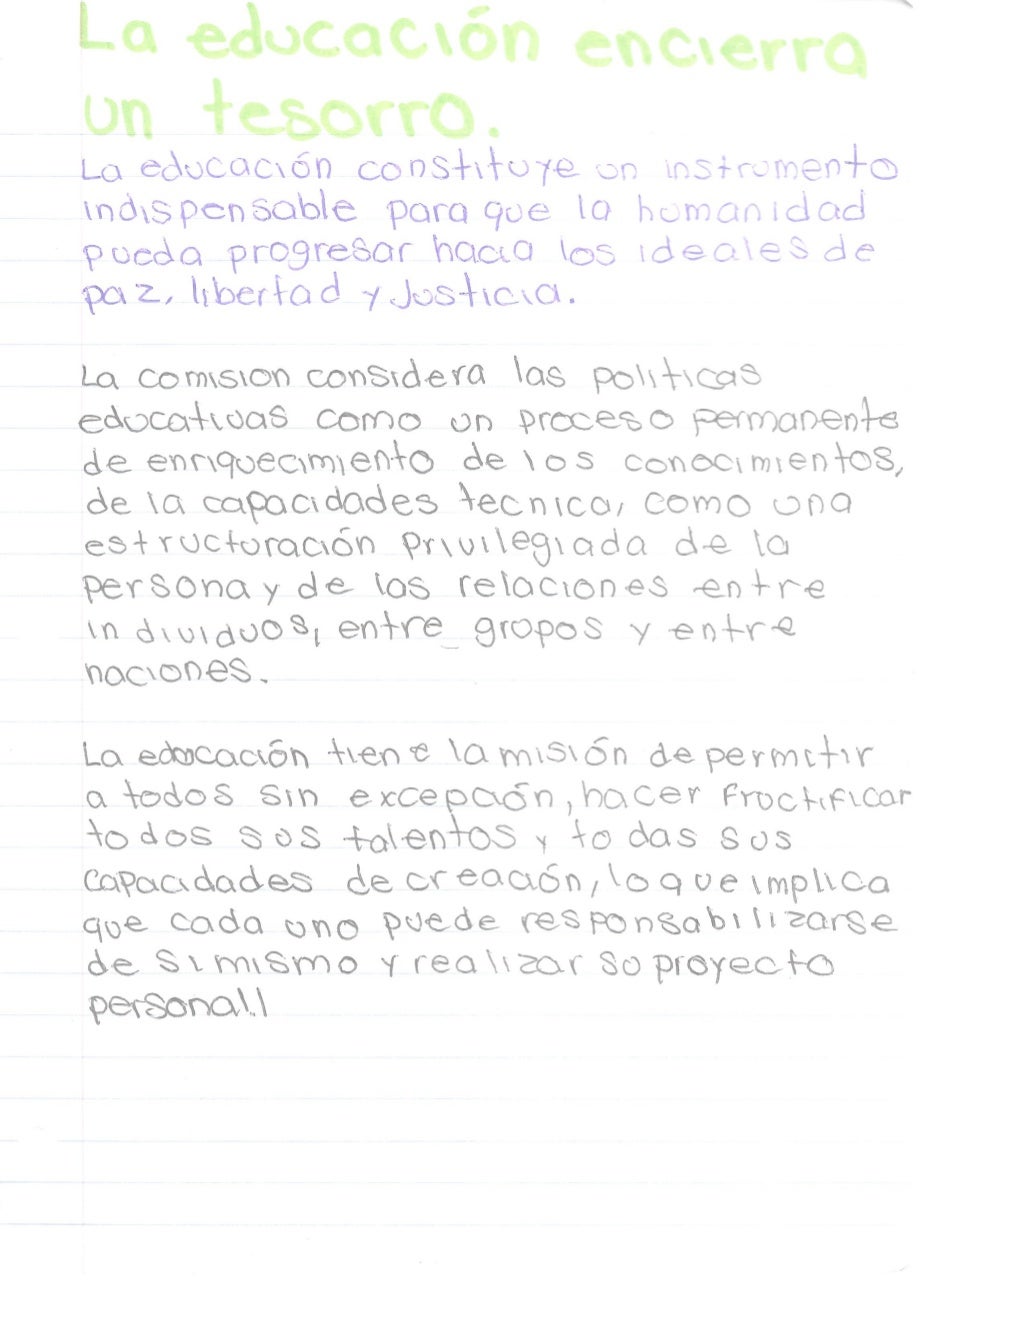 La educación encierra
un tesorro.
La educación constituye un instrumento
indispensable para que la humanidad
pueda progresar hacia los ideales de
paz, libertad y Justicia.
La comision considera las politicas
educativas como un proceso permanente
de enriquecimiento de los conocimientos,
de la capacidades tecnica, como una
estructuración privilegiada de la
persona y de las relaciones entre
individuos, entre grupos y entre
naciones.
La educación tiene la misión de permitir
a todos sin excepción, hacer fructificar
todos sus talentos y todas sus
capacidades de creación, lo que implica
que cada uno puede responsabilizarse
de si mismo y realizar su proyecto
personal.